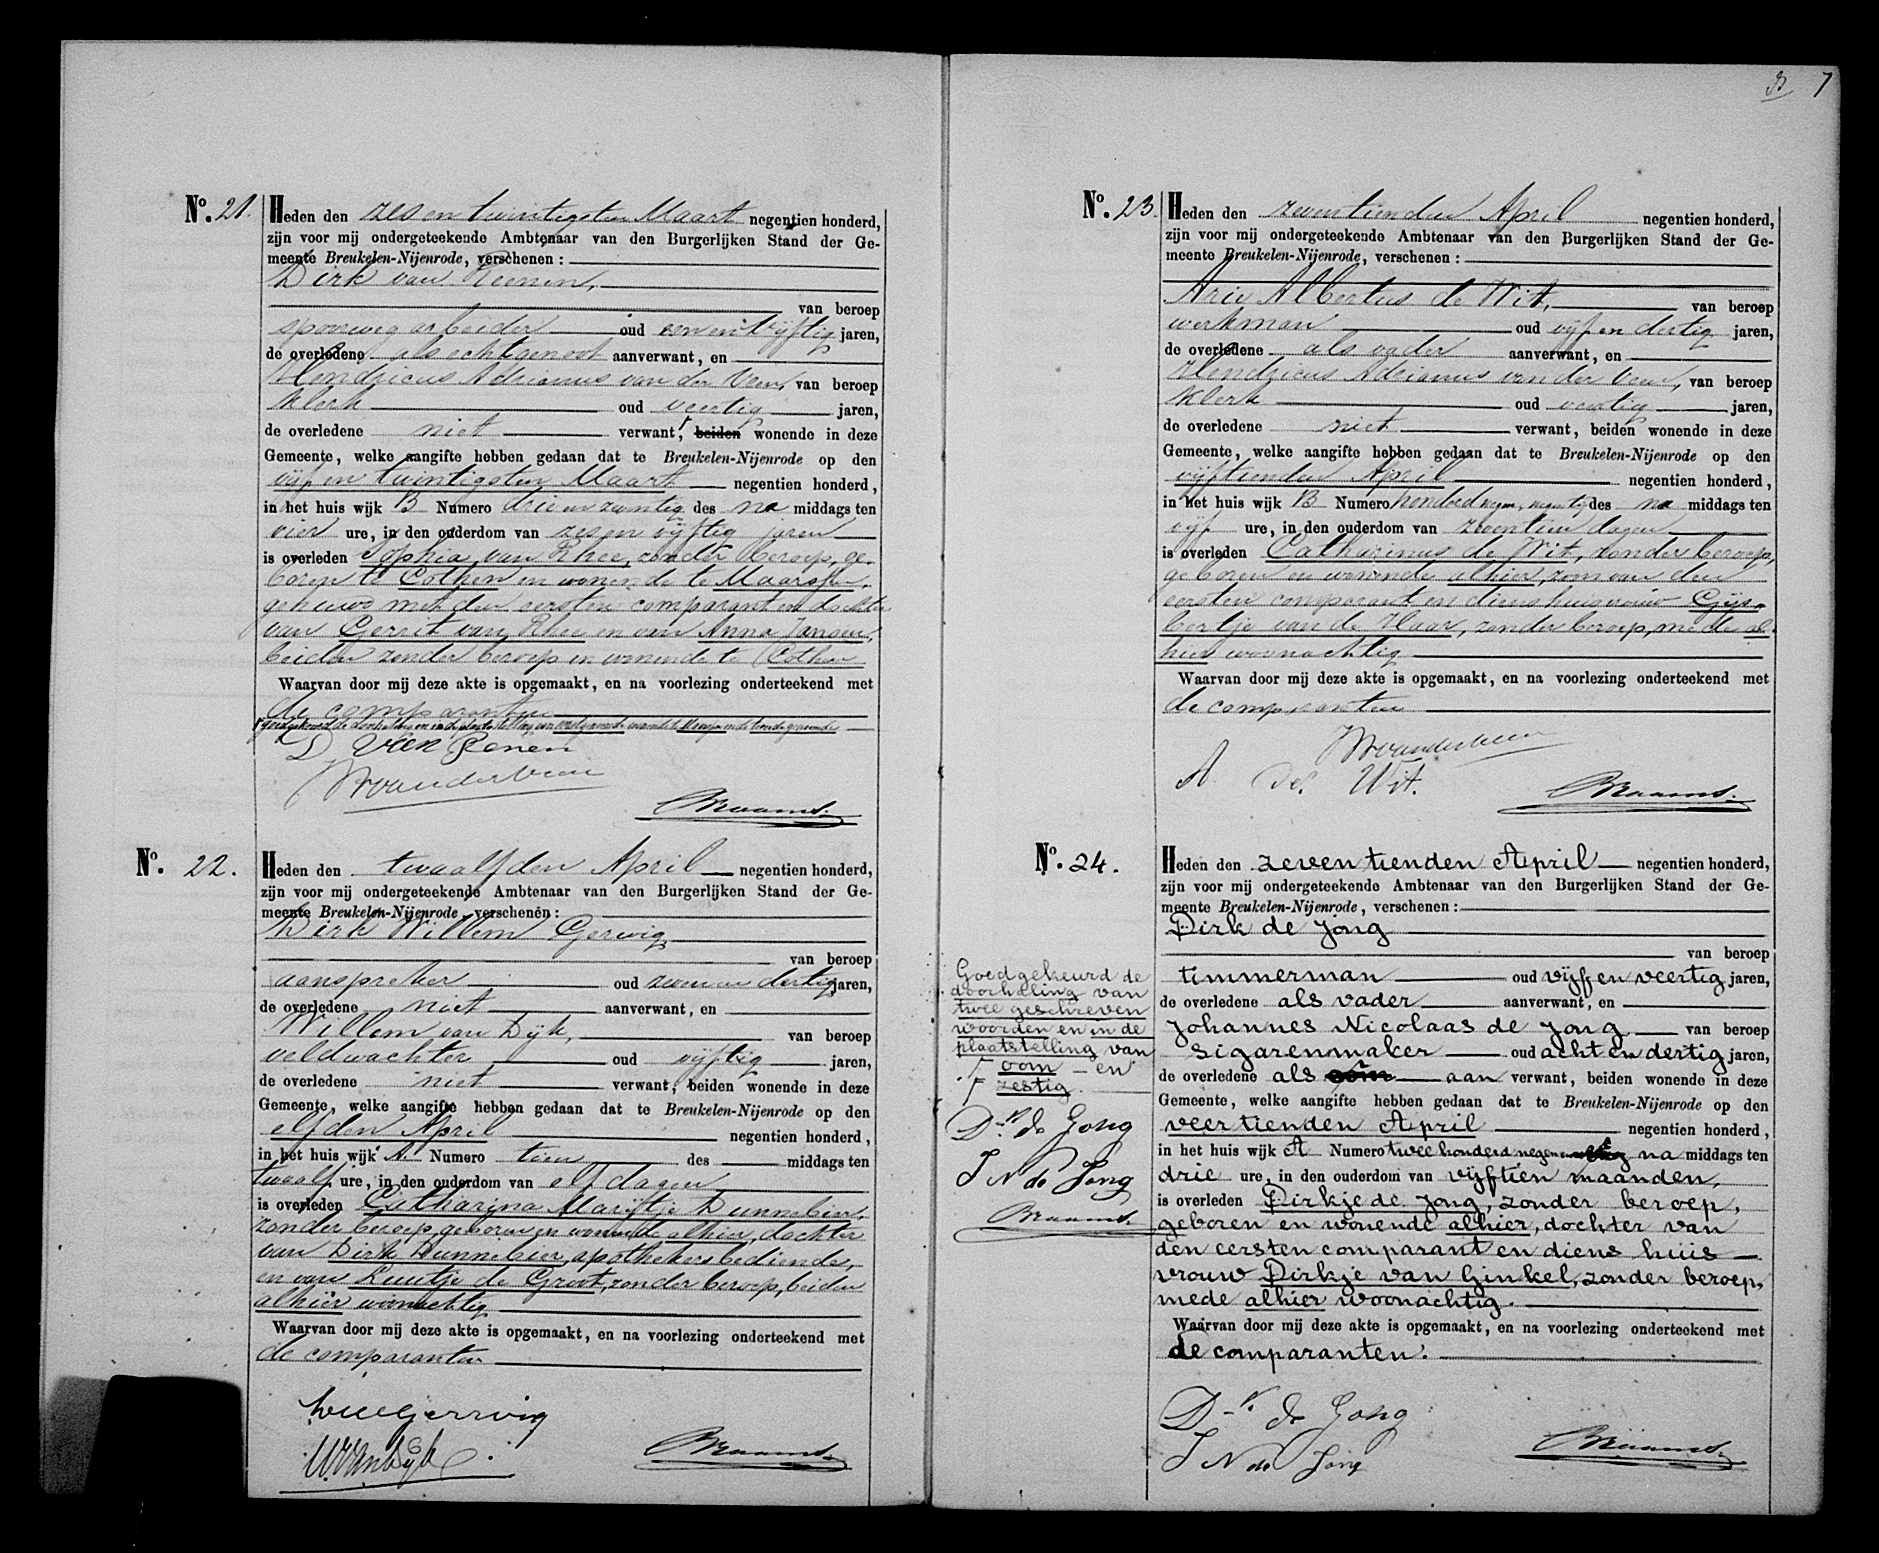 No. 21.
Heden den zes en twintigsten Maart negentien honderd,
zijn voor mij ondergeteekende Ambtenaar van den Burgerlijken Stand der Ge-
meente Breukelen-Nijenrode, verschenen :
Dirk van Reenen,
van beroep
spoorwegarbeider oud een en vijftig jaren,
de overledene als echtgenoot aanverwant, en
Hendricus Adrianus van der Veen, van beroep
klerk oud veertig jaren,
de overledene niet verwant, beiden wonende in deze
Gemeente, welke aangifte hebben gedaan dat te Breukelen-Nijenrode op den
vijf en twintigsten Maart negentien honderd,
in het huis wijk B Numero drie en twintig des na middags ten
vier ure, in den ouderdom van zes en vijftig jaren
is overleden Sophia van Rhee, zonder beroep, ge-
boren te Cothen en wonende te Maarssen,
gehuwd met den eersten comparant en dochter
van Gerrit van Rhee en van Anna Jansen,
beiden zonder beroep en wonende te Cothen
Waarvan door mij deze akte is opgemaakt, en na voorlezing onderteekend met
de comparanten
D van Renen
HAvanderveen
Braams.
No. 22.
Heden den twaalfden April negentien honderd,
zijn voor mij ondergeteekende Ambtenaar van den Burgerlijken Stand der Ge-
meente Breukelen-Nijenrode, verschenen :
Dirk Willem Gerwig
van beroep
aanspreker oud zeven en dertig jaren,
de overledene niet aanverwant, en
Willem van Dijk, van beroep
veldwachter oud vijftig jaren,
de overledene niet verwant, beiden wonende in deze
Gemeente, welke aangifte hebben gedaan dat te Breukelen-Nijenrode op den
elfden April negentien honderd,
in het huis wijk A Numero tien des middags ten
twaalf ure, in den ouderdom van elf dagen
is overleden Catharina Marijtje Dunnebier,
zonder beroep, geboren en wonende alhier, dochter
van Dirk Dunnebier, apothekersbediende,
en van Luutje de Groot, zonder beroep, beiden
alhier woonachtig
Waarvan door mij deze akte is opgemaakt, en na voorlezing onderteekend met
de comparanten
DWGerwig
WvanDijk
Braams.
7
No. 23.
Heden den zeventienden April negentien honderd,
zijn voor mij ondergeteekende Ambtenaar van den Burgerlijken Stand der Ge-
meente Breukelen-Nijenrode, verschenen :
Arie Albertus de Wit, van beroep
werkman oud vijf en dertig jaren,
de overledene als vader aanverwant, en
Hendricus Adrianus van der Veen, van beroep
klerk oud veertig jaren,
de overledene niet verwant, beiden wonende in deze
Gemeente, welke aangifte hebben gedaan dat te Breukelen-Nijenrode op den
vijftienden April negentien honderd,
in het huis wijk B Numero honderd negen, negentig des na middags ten
vijf ure, in den ouderdom van zeventien dagen
is overleden Catharinus de Wit, zonder beroep,
geboren en wonende alhier, zoon van den
eersten comparant en diens huisvrouw Gijs-
bertje van de Haar, zonder beroep, mede al-
hier woonachtig
Waarvan door mij deze akte is opgemaakt, en na voorlezing onderteekend met
de comparanten
HAvanderveen
A de Wit.
Braams.
No. 24.
Heden den zeventienden April negentien honderd,
zijn voor mij ondergeteekende Ambtenaar van den Burgerlijken Stand der Ge-
meente Breukelen-Nijenrode, verschenen :
Dirk de Jong
van beroep
timmerman oud vijf en veertig jaren,
de overledene als vader aanverwant, en
Johannes Nicolaas de Jong van beroep
sigarenmaker oud acht en dertig jaren,
de overledene als oom aan verwant, beiden wonende in deze
Gemeente, welke aangifte hebben gedaan dat te Breukelen-Nijenrode op den
veertienden April negentien honderd,
in het huis wijk A Numero twee honderd negen en na middags ten
drie ure, in den ouderdom van vijftien maanden,
is overleden Dirkje de Jong, zonder beroep,
geboren en wonende alhier, dochter van
den eersten comparant en diens huis-
vrouw Dirkje van Ginkel, zonder beroep,
mede alhier woonachtig.
Waarvan door mij deze akte is opgemaakt, en na voorlezing onderteekend met
de comparanten.
Goedgekeurd de
doorhaling van
twee geschreven
woorden en in de
plaatstelling van
oom en
zestig.
Dk de Jong
J N de Jong
Braams.
Dk de Jong
J N de Jong
Braams.